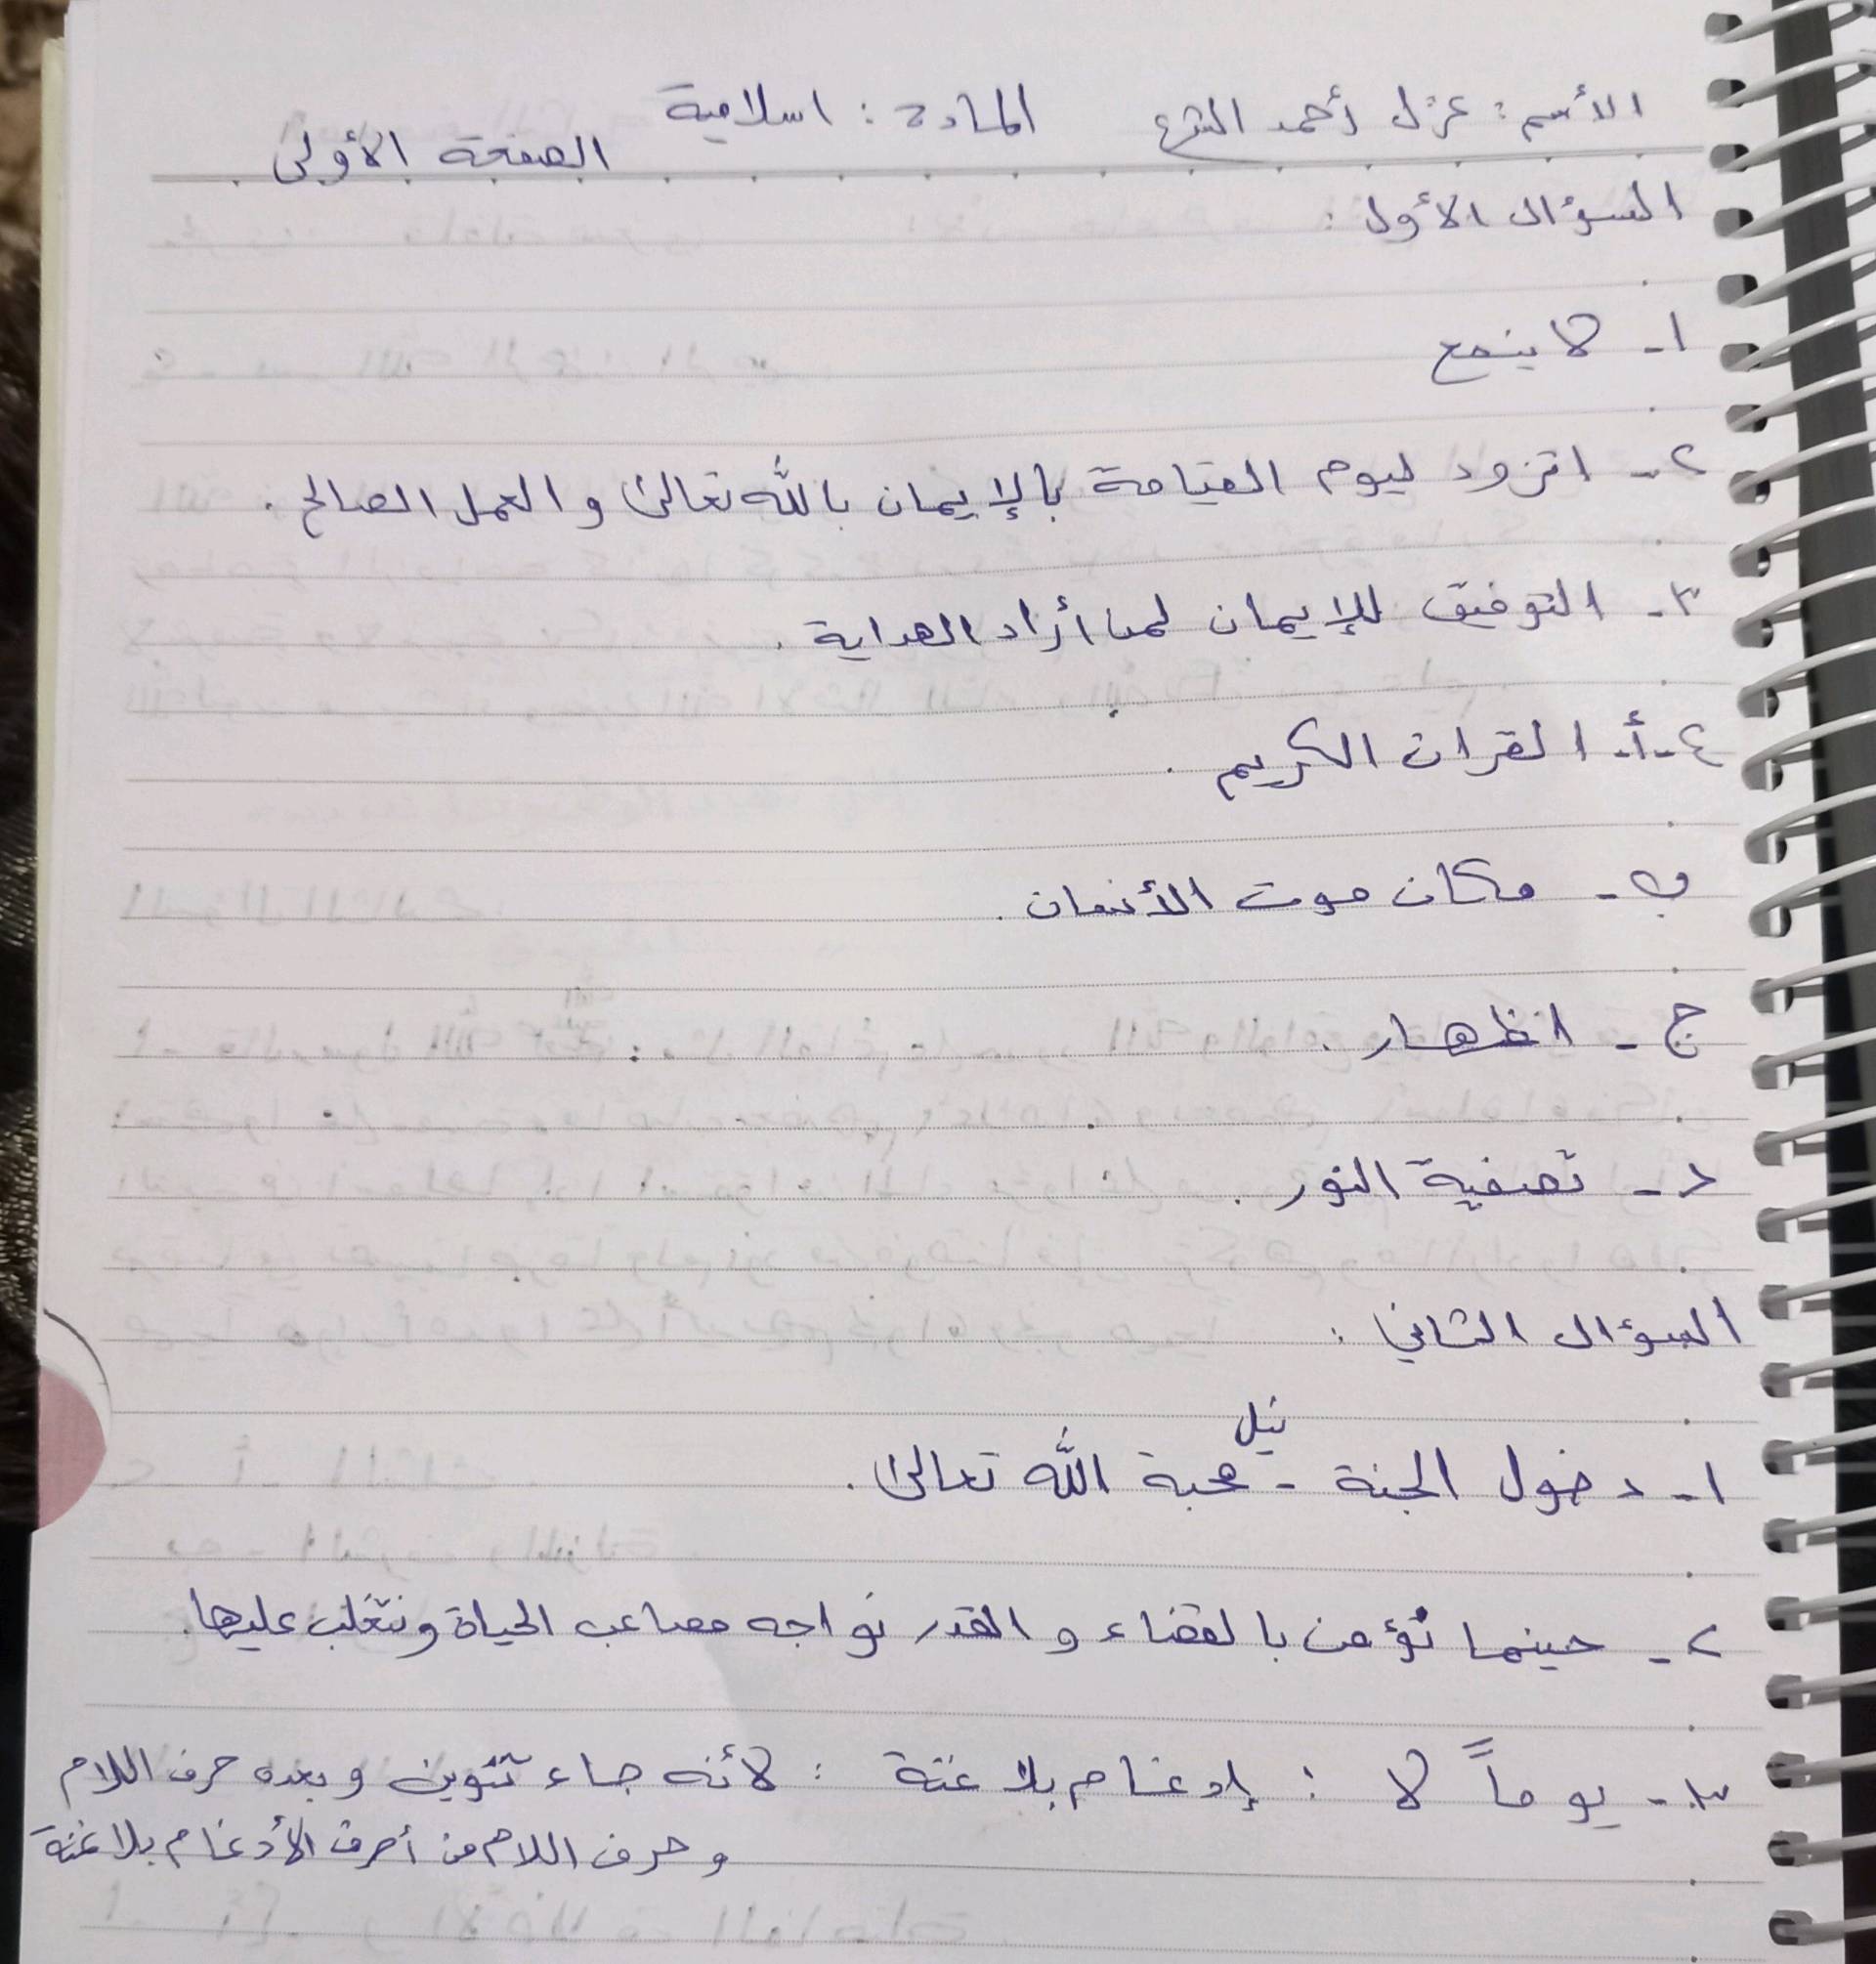 الأسم : غزل أحمد الشرع المادة : اسلامية الصفحة الأولى
السؤال الأول :
١- لا ينفع
٢- اتزود ليوم القيامة بالإيمان بالله تعالى والعمل الصالح .
٣- التوفيق للإيمان لمن أراد الهداية .
٤-أ- القران الكريم .
ب- مكان موت الأنسان .
ج- اظهار .
د- تصفية النور .
السؤال الثاني :
١- دخول الجنة - نيل محبة الله تعالى .
٢- حينما نؤمن بالقضاء والقدر نواجه مصاعب الحياة ونتغلب عليها .
٣- يوماً لا : إدغام بلا غنة : لأنه جاء تنوين وبعده حرف اللام
وحرف اللام من أحرف الأدغام بلا غنة